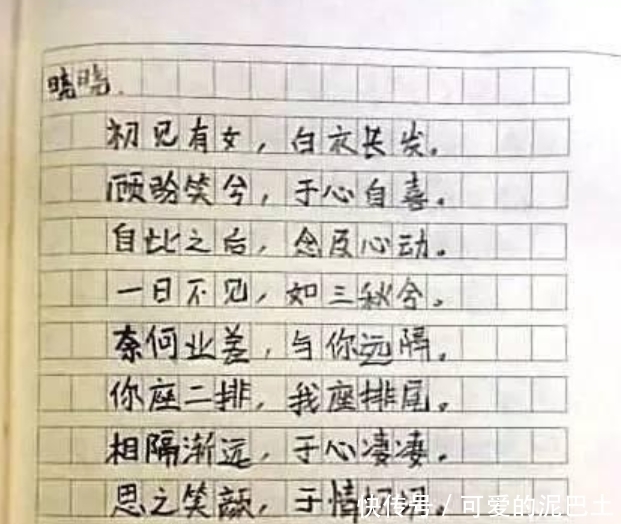 晓晓.
初见有女，白衣长发。
顾盼笑兮，于心自喜。
自此之后，念及心动。
一日不见，如三秋兮。
奈何业差，与你远隔。
你座二排，我座排尾。
相隔渐远，于心凄凄。
思之笑颜，于情
快传号 / 可爱的泥巴土